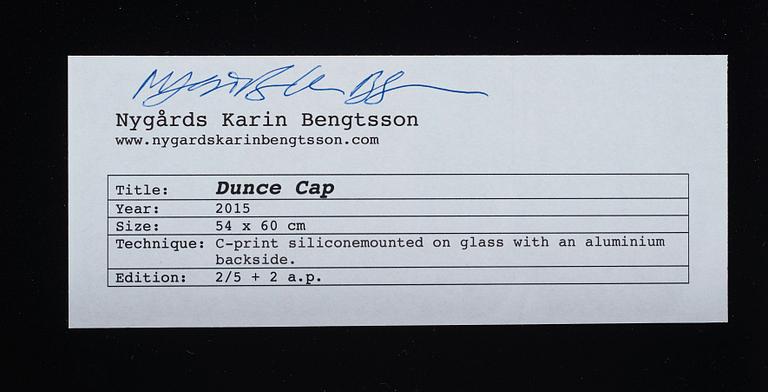 Nygårds Karin Bengtsson
www.nygardskarinbengtsson.com
Title: Dunce Cap
Year: 2015
Size: 54 x 60 cm
Technique: C-print siliconemounted on glass with an aluminium
backside.
Edition: 2/5 + 2 a.p.